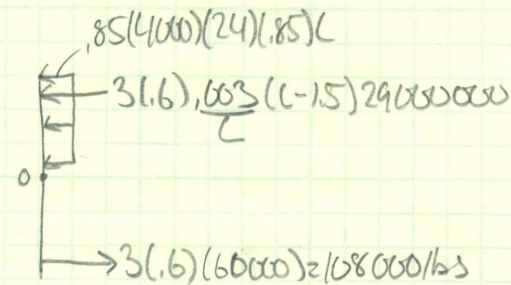 .85(4000)(24)(.85)C
3(.6).003(C-1.5)29000000
C
0
3(.6)(60000)=108000lbs